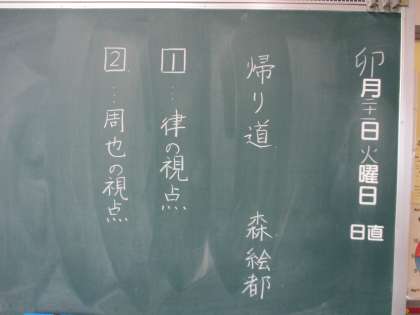 卯月二十二日火曜日
日直
帰り道 森絵都
1…律の視点
2…周也の視点